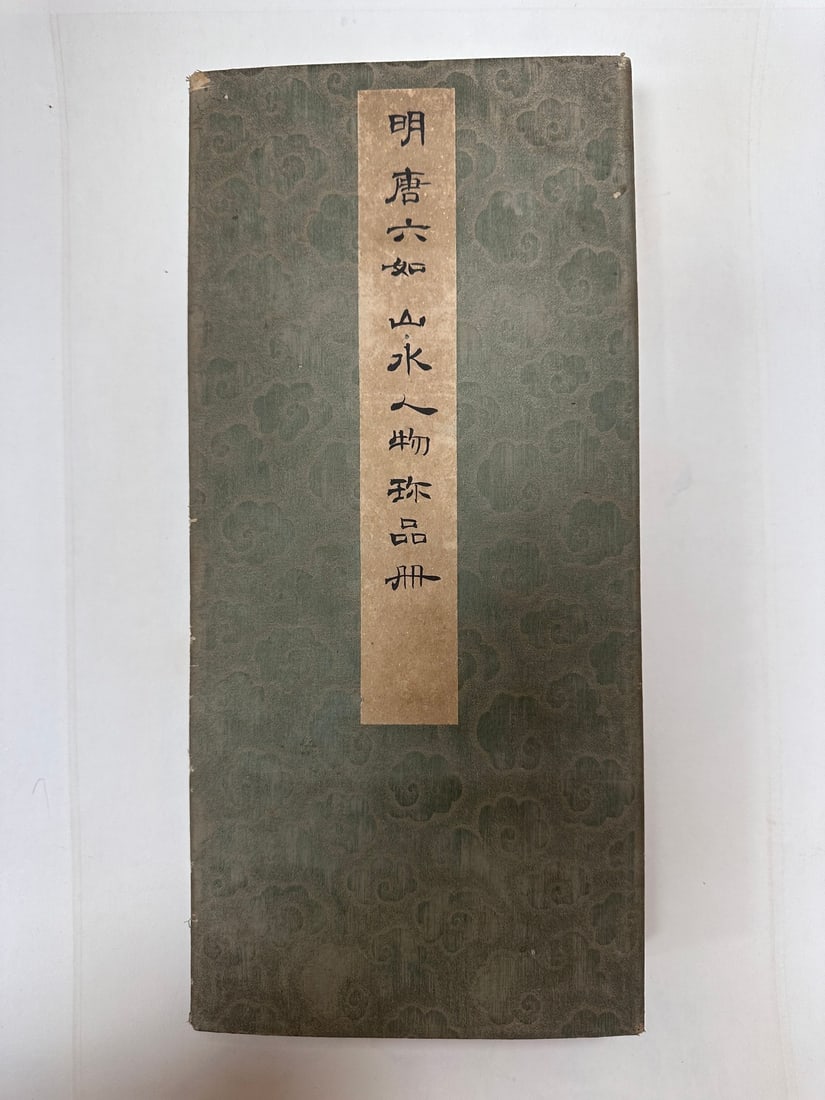 明唐六如山水人物珎品册